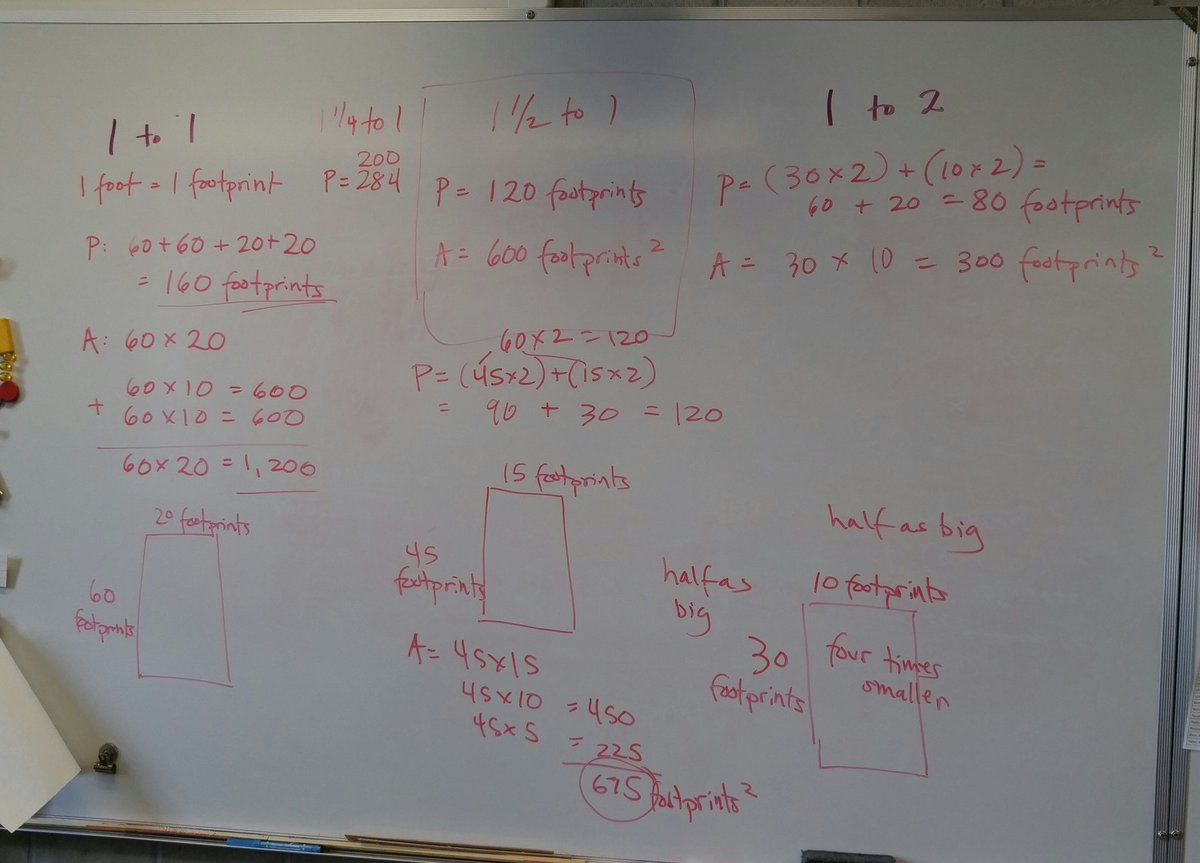 1 to 1
1 foot = 1 footprint
P: 60+60+20+20
= 160 footprints
A: 60 × 20
60 × 10 = 600
+ 60 × 10 = 600
60 × 20 = 1,200
20 footprints
60
footprints
1 1/4 to 1
200
P = 284
1 1/2 to 1
P = 120 footprints
A = 600 footprints²
60 × 2 = 120
P = (45×2)+(15×2)
= 90 + 30 = 120
15 footprints
45
footprints
A = 45×15
45×10 = 450
45×5 = 225
675 footprints²
1 to 2
P = (30×2)+(10×2) =
60 + 20 = 80 footprints
A = 30 × 10 = 300 footprints²
half as big
half as
big
10 footprints
30
footprints
four times
smaller